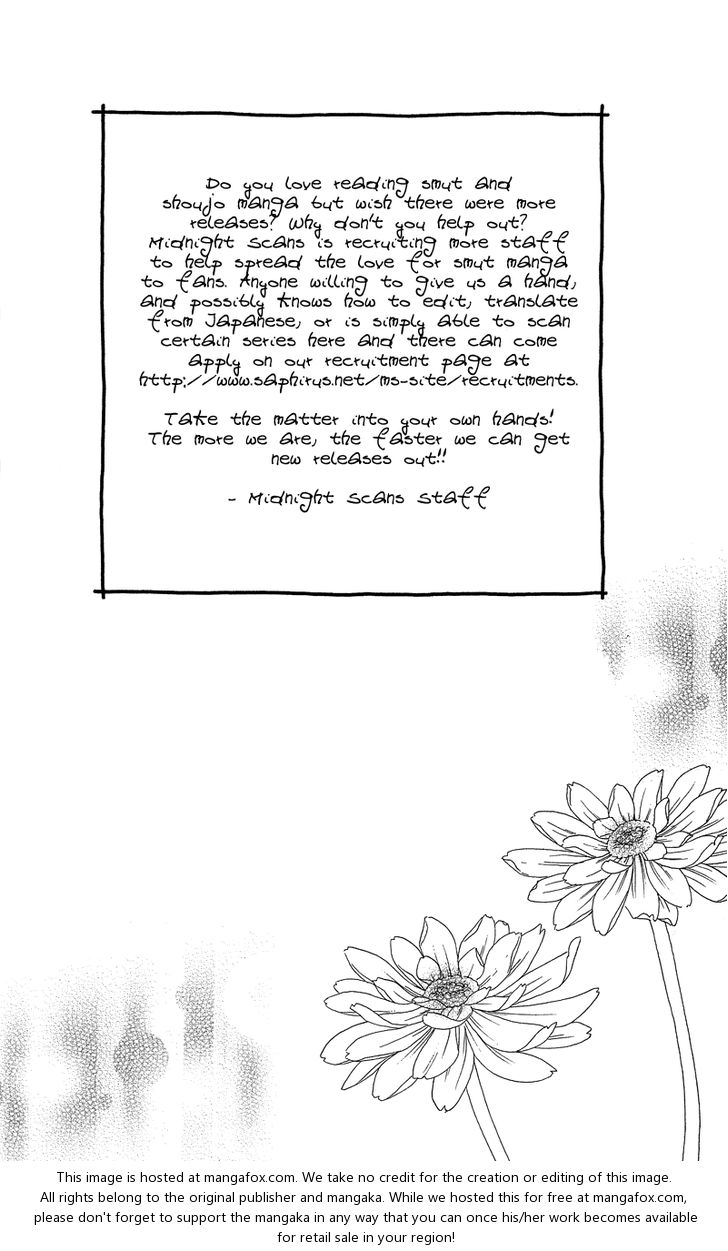 Do you love reading smut and
shoujo manga but wish there were more
releases? Why don't you help out?
Midnight Scans is recruiting more staff
to help spread the love for smut manga
to fans. Anyone willing to give us a hand,
and possibly knows how to edit, translate
from Japanese, or is simply able to scan
certain series here and there can come
apply on our recruitment page at
http://www.saphirus.net/ms-site/recruitments.
Take the matter into your own hands!
The more we are, the faster we can get
new releases out!!
- Midnight Scans Staff
This image is hosted at mangafox.com. We take no credit for the creation or editing of this image.
All rights belong to the original publisher and mangaka. While we hosted this for free at mangafox.com,
please don't forget to support the mangaka in any way that you can once his/her work becomes available
for retail sale in your region!